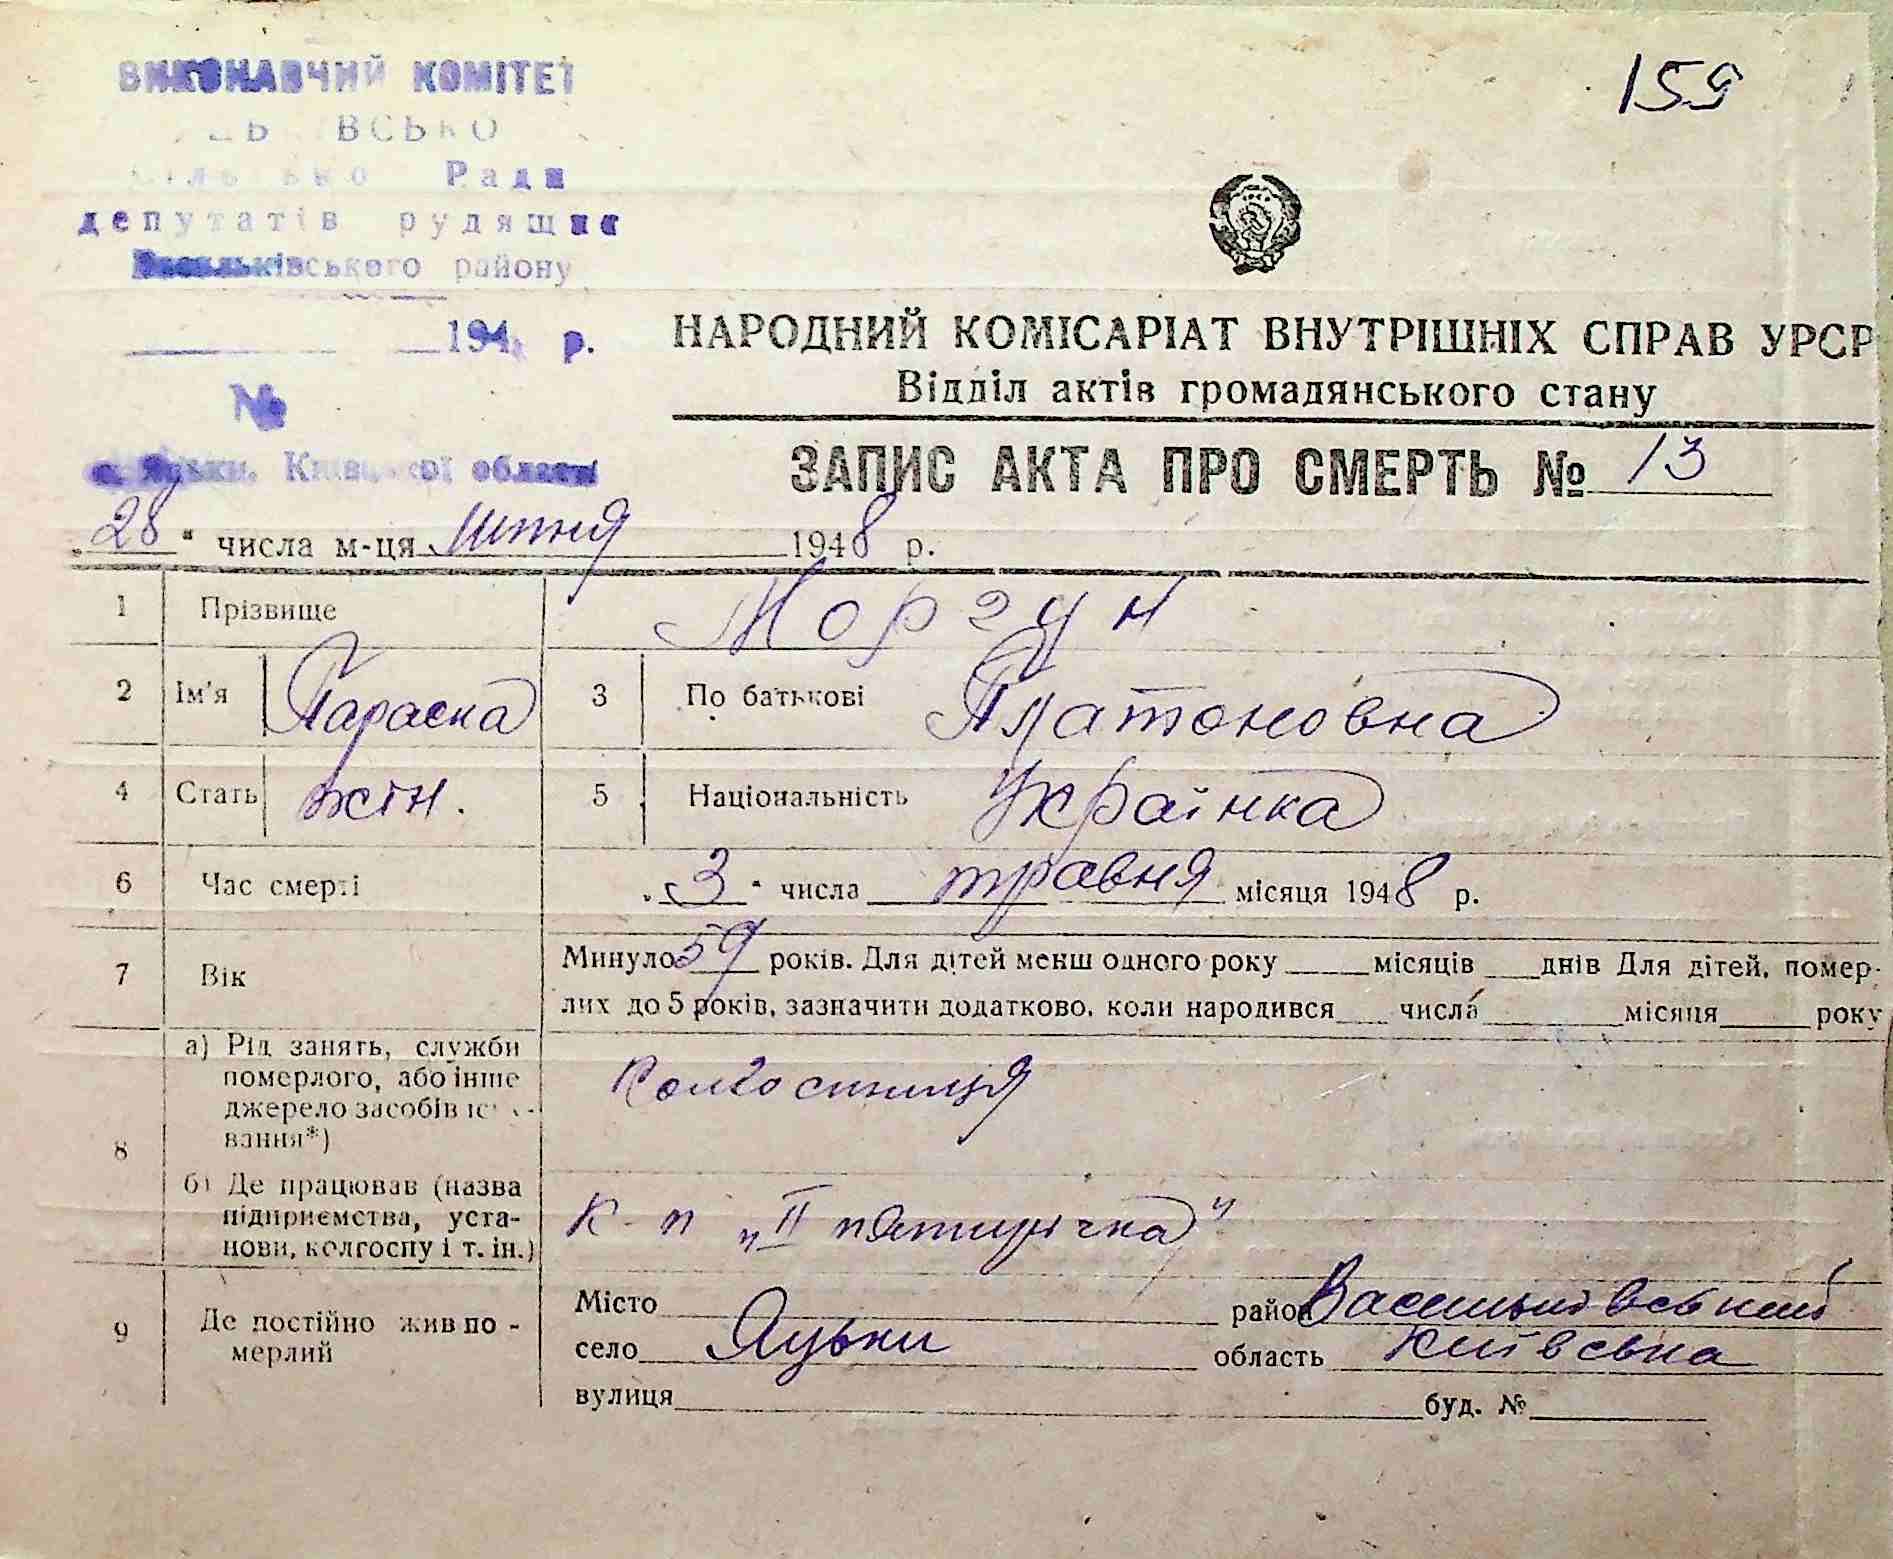 159
ВИКОНАВЧИЙ КОМІТЕТ
Ради
депутатів рудящих
Васильківського району
194 р.
№
с. Яцьки, Київської області
НАРОДНИЙ КОМІСАРІАТ ВНУТРІШНІХ СПРАВ УРСР
Відділ актів громадянського стану
ЗАПИС АКТА ПРО СМЕРТЬ № 13
„28“ числа м-ця липня 1948 р.
1 Прізвище Моргун
2 Ім'я Параска 3 По батькові Платоновна
4 Стать жін. 5 Національність Українка
6 Час смерті „3“ числа травня місяця 1948 р.
7 Вік Минуло 59 років. Для дітей менш одного року ___ місяців ___ днів Для дітей, помер-
лих до 5 років, зазначити додатково, коли народився ___ числа ___ місяця ___ року
8 а) Рід занять, служби
померлого, або інше
джерело засобів існу-
вання*)
Колгоспниця
б) Де працював (назва
підприємства, уста-
нови, колгоспу і т. ін.)
к-п „II пятирічка"
9 Де постійно жив по-
мерлий
Місто ___ район Васильківський
село Яцьки область Київська
вулиця ___ буд. № ___